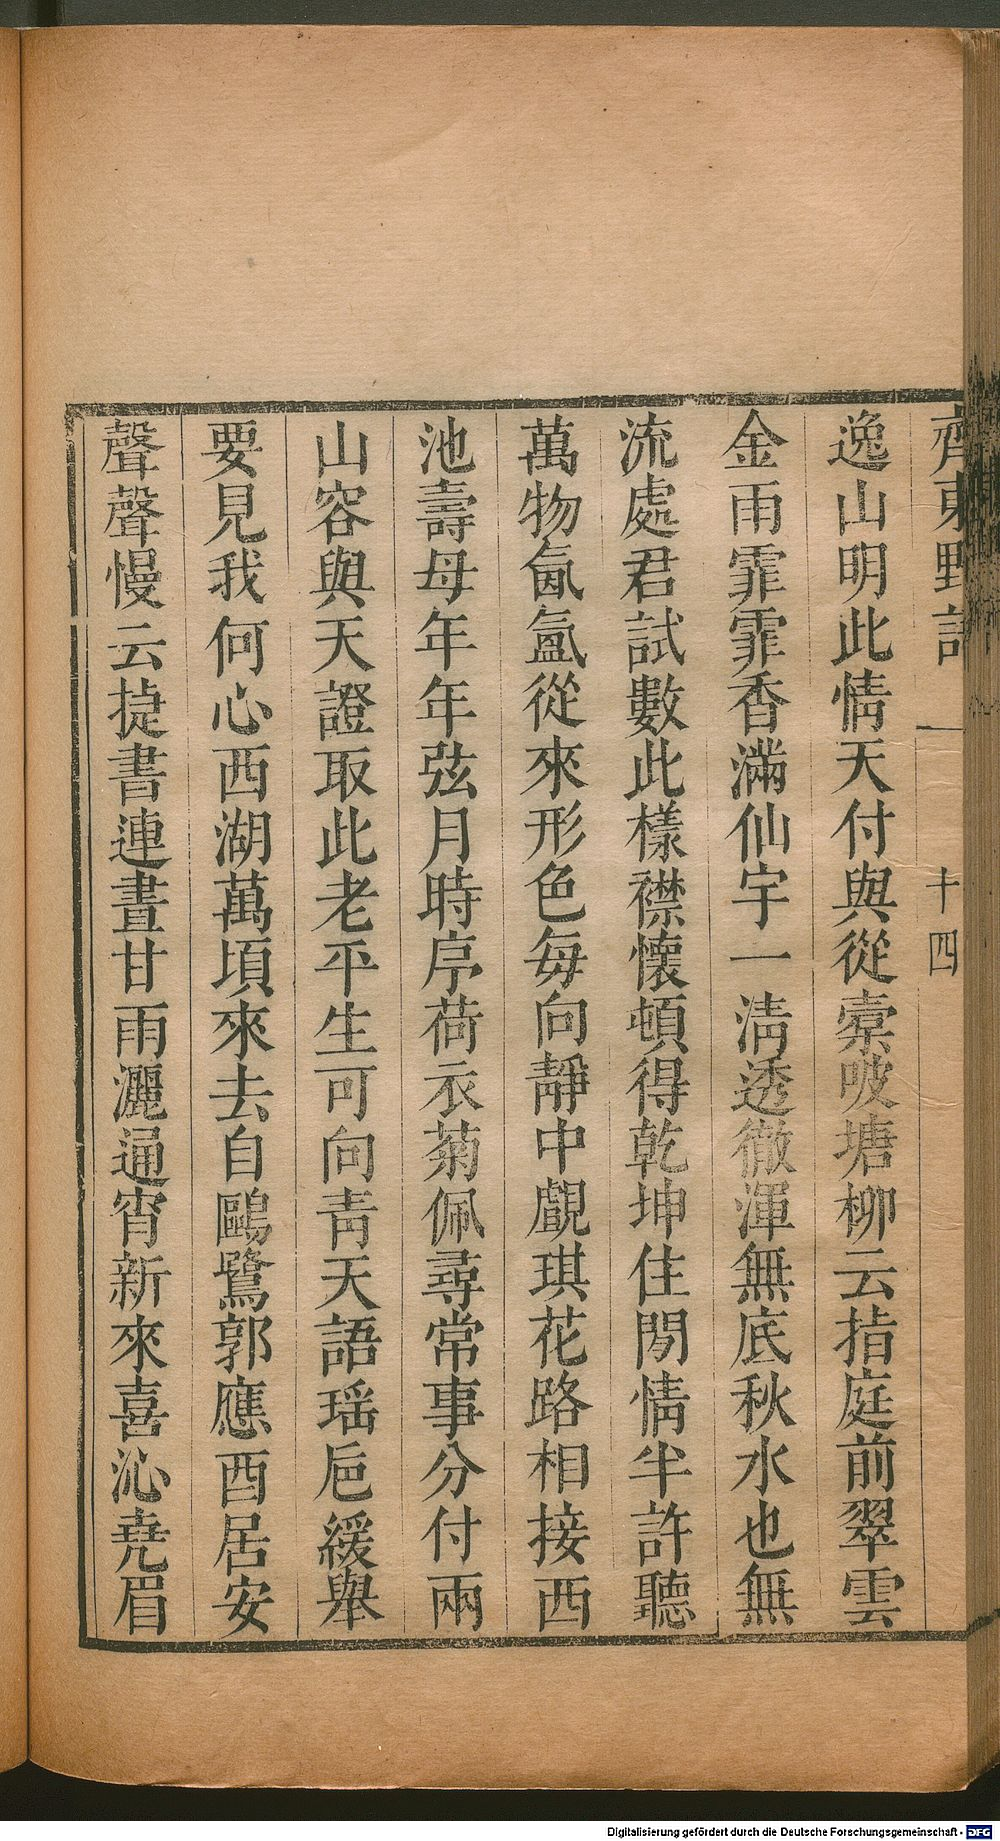 齊東野語
十四
逸山明此情天付與從橐吹塘柳云指庭前翠雲
金雨霏霏香滿仙宇一淸透徹渾無底秋水也無
流處君試數此樣襟懷頓得乾坤住閒情半許聽
萬物氤氳從來形色每向靜中覷琪花路相接西
池壽母年年弦月時序荷衣菊佩尋常事分付兩
山容與天證取此老平生可向靑天語瑶巵緩舉
要見我何心西湖萬頃來去自鷗鷺郭應酉居安
聲聲慢云捷書連晝甘雨灑通宵新來喜沁堯眉
Digitalisierung gefördert durch die Deutsche Forschungsgemeinschaft - DFG